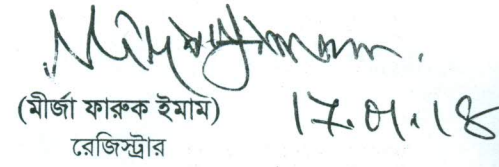 (মীর্জা ফারুক ইমাম)
রেজিস্ট্রার
17.01.18